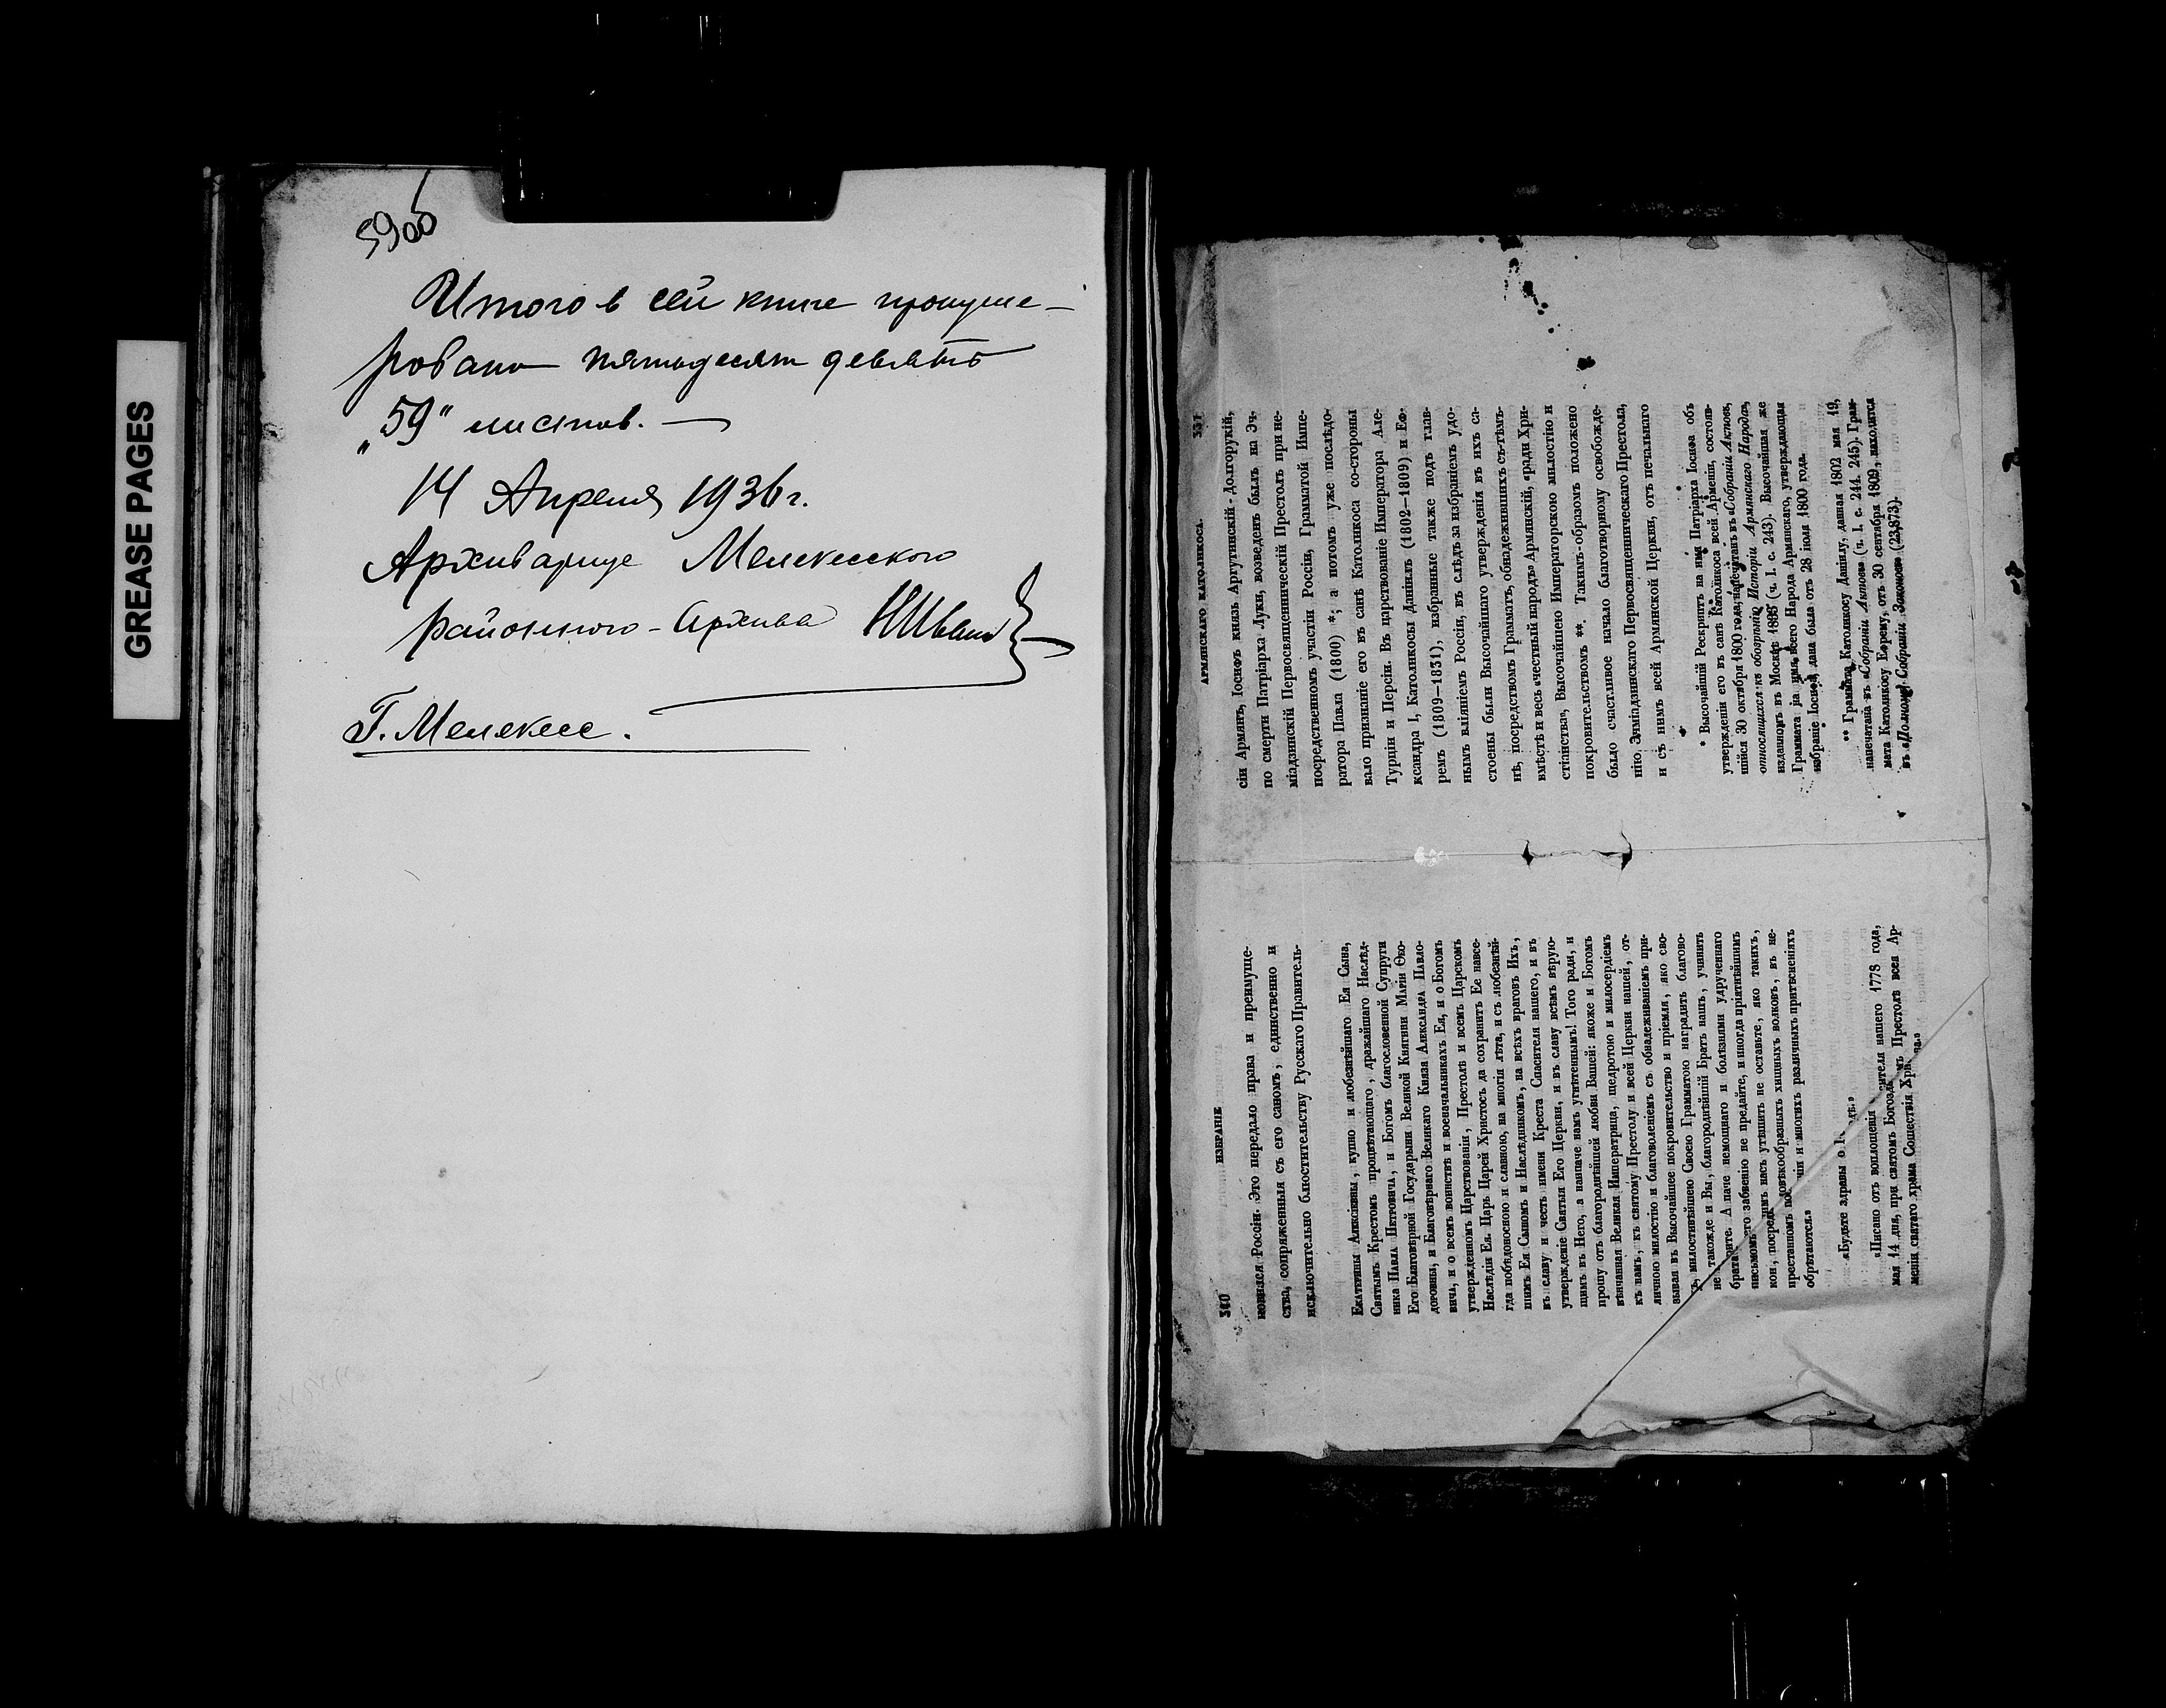 GREASE PAGES
5900
Итого в сей книге пронуме-
ровано пятьдесят девять
„59" листов. —
14 Апреля 1936 г.
Архивариус Мелекесского
районного - Архива
Г. Мелекесс.
331
АРМЯНСКАГО КАТОЛИКОСА.
сіи Армянъ, Іосифъ князь Аргутинскій - Долгорукій,
по смерти Патріарха Луки, возведенъ былъ на Эч-
міадзинскій Первосвященническій Престолъ при не-
посредственномъ участіи Россіи, Грамматой Импе-
ратора Павла (1800) *; а потомъ уже послѣдо-
вало признаніе его въ санѣ Католикоса со-стороны
Турціи и Персіи. Въ царствованіе Императора Але-
ксандра I, Католикосы Даніилъ (1802—1809) и Еф-
ремъ (1809—1831), избранные также подъ глав-
нымъ вліяніемъ Россіи, въ слѣдъ за избраніемъ удо-
стоены были Высочайшаго утвержденія въ ихъ са-
нѣ, посредствомъ Граммать, обнадежившихъ съ-тѣмъ-
вмѣстѣ и весь «честный народъ» Армянскій, «ради Хри-
стіанства», Высочайшею Императорскою милостію и
покровительствомъ **. Такимъ-образомъ положено
было счастливое начало благотворному освобожде-
нію Эчміадзинскаго Первосвященническаго Престола,
и съ нимъ всей Армянской Церкви, отъ печальнаго
* Высочайшій Рескриптъ на имя Патріарха Іосифа объ
утвержденіи его въ санѣ Католикоса всей Арменіи, состояв-
шійся 30 октября 1800 года, напечатанъ въ «Собраніи Актовъ,
относящихся къ обозрѣнію Исторіи Армянскаго Народа»,
изданномъ въ Москвѣ (ч. I. с. 243). Высочайшая же
Граммата на имя всего Народа Армянскаго, утверждающая
избраніе Іосифа, дана была отъ 28 іюля 1800 года.
** Граммата Католикосу Даніилу, данная 1802 мая 19,
напечатана въ «Собраніи Актовъ» (ч. I. с. 244. 245). Грам-
мата Католикосу Ефрему, отъ 30 сентября 1809, находится
въ «Полномъ Собраніи Законовъ» (23,873).
ИЗБРАНІЕ
Россіи. Это передало права и преимуще-
ства, сопряженныя съ его саномъ, единственно и
исключительно блюстительству Русскаго Правитель-
Екатерины Алексіевны, купно и любезнѣйшаго Ея Сына,
Святымъ Крестомъ процвѣтающаго, дражайшаго Наслѣд-
ника Павла Петровича, и Богомъ благословенной Супруги
Его Благовѣрной Государыни Великой Княгини Маріи Ѳео-
доровны, и Благовѣрнаго Великаго Князя Александра Павло-
вича, и о всемъ воинствѣ и военачальникахъ Ея, и о Богомъ
утвержденномъ Царствованіи, Престолѣ и всемъ Царскомъ
Наслѣдіи Ея. Царь Царей Христосъ да сохранитъ Ее навсе-
гда побѣдоносною и славною, на многія лѣта, и съ любезнѣй-
шимъ Ея Сыномъ и Наслѣдникомъ, на всѣхъ враговъ Ихъ,
въ славу и честь имени Креста Спасителя нашего, и въ
утвержденіе Святыя Его Церкви, и въ славу всѣмъ вѣрую-
щимъ въ Него, а наипаче намъ угнѣтеннымъ! Того ради, и
прошу отъ благороднѣйшей любви Вашей: якоже и Богомъ
вѣнчанная Великая Императрица, щедротою и милосердіемъ
къ намъ, къ святому Престолу и всей Церкви нашей, от-
личною милостію и благоволеніемъ съ обнадеживаніемъ при-
зывая въ Высочайшее покровительство и пріемля, яко сво-
милостивѣйшею Своею Грамматою наградить благово-
такожде и Вы, благороднѣйшій Братъ нашъ, учинить
не
А паче немощнаго и болѣзнями удрученнаго
брата
забвенію не предайте, и иногда пріятнѣйшимъ
письмомъ
насъ утѣшить не оставьте, яко такихъ,
кои, посредѣ
хищныхъ волковъ, въ не-
престанномъ
и многихъ различныхъ притѣсненіяхъ
обрѣтаются.»
«Будьте здравы о
«Писано отъ воплощенія
нашего 1778 года,
мая 14 дня, при святомъ
Престолѣ всея Ар-
меніи святаго храма Сошествія